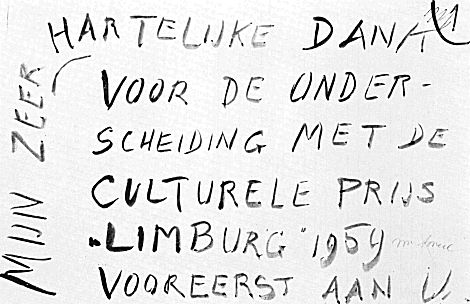 MIJN ZEER
HARTELIJKE DANK
VOOR DE ONDER-
SCHEIDING MET DE
CULTURELE PRIJS
„LIMBURG" 1959
VOOREERST AAN U.